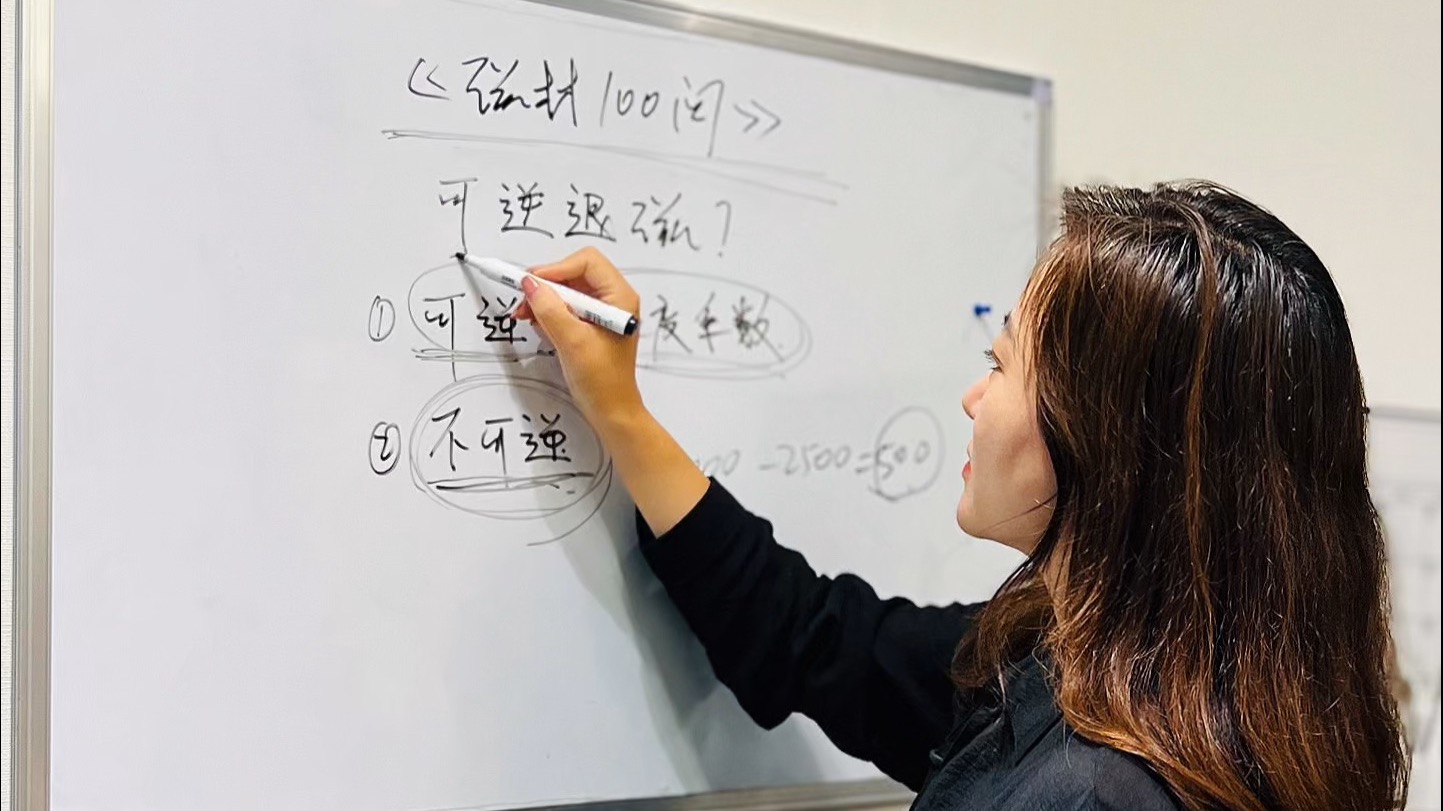 《磁封100问》
可逆退磁?
① 可逆 度系数
② 不可逆
00-2500=500